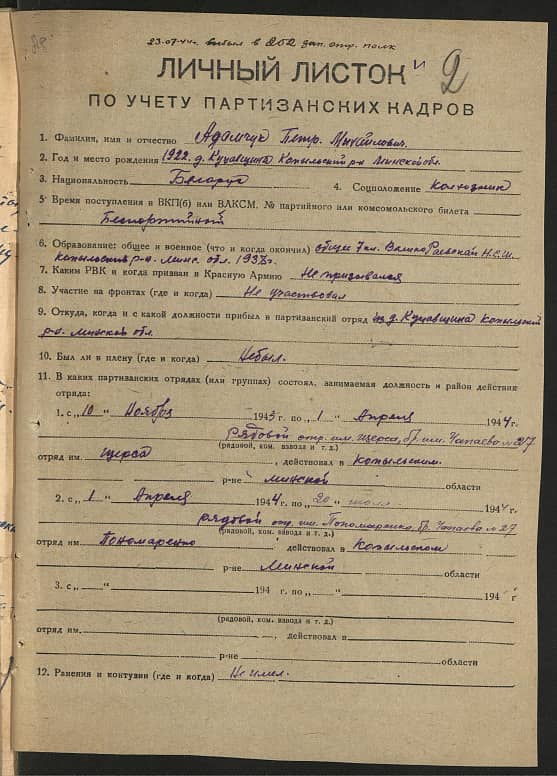 23-07-44 г. выбыл в 252 зап. стр. полк
2
ЛИЧНЫЙ ЛИСТОК
ПО УЧЕТУ ПАРТИЗАНСКИХ КАДРОВ
1. Фамилия, имя и отчество Адамчук Петр Михайлович.
2. Год и место рождения 1922. д. Куцовщина Копыльский р-н Минской обл.
3. Национальность Беларус 4. Соцположение колхозник
5. Время поступления в ВКП(б) или ВЛКСМ. № партийного или комсомольского билета
Беспартийной
6. Образование: общее и военное (что и когда окончил) общее 7 кл. Велико Раевская Н.С.Ш.
Копыльский р-о. Минс. обл. 1938 г.
7. Каким РВК и когда призван в Красную Армию Не призывался
8. Участие на фронтах (где и когда) Не участвовал
9. Откуда, когда и с какой должности прибыл в партизанский отряд из д. Куцовщина Копыльский
р-о. Минской обл.
10. Был ли в плену (где и когда) Небыл.
11. В каких партизанских отрядах (или группах) состоял, занимаемая должность и район действия
отряда:
1. с „10 “ Ноября 1943 г. по „1 “ Апреля 1944 г.
рядовой отр. им. Щорса, бр. им. Чапаева №27
(рядовой, ком. взвода и т. д.)
отряд им. Щорса, действовал в Копыльским.
р-не Минской области
2. с „1 “ Апреля 1944 г. по „20 “ июля 1944 г.
рядовой отр. им. Пономаренко, бр. Чапаева №27
(рядовой, ком. взвода и т. д.)
отряд им. Пономаренко действовал в Копыльском
р-не Минской области
3. с „ “ 194 г. по „ “ 194 г
(рядовой, ком. взвода и т. д.)
отряд им. , действовал в
р-не области
12. Ранения и контузии (где и когда) Не имел.